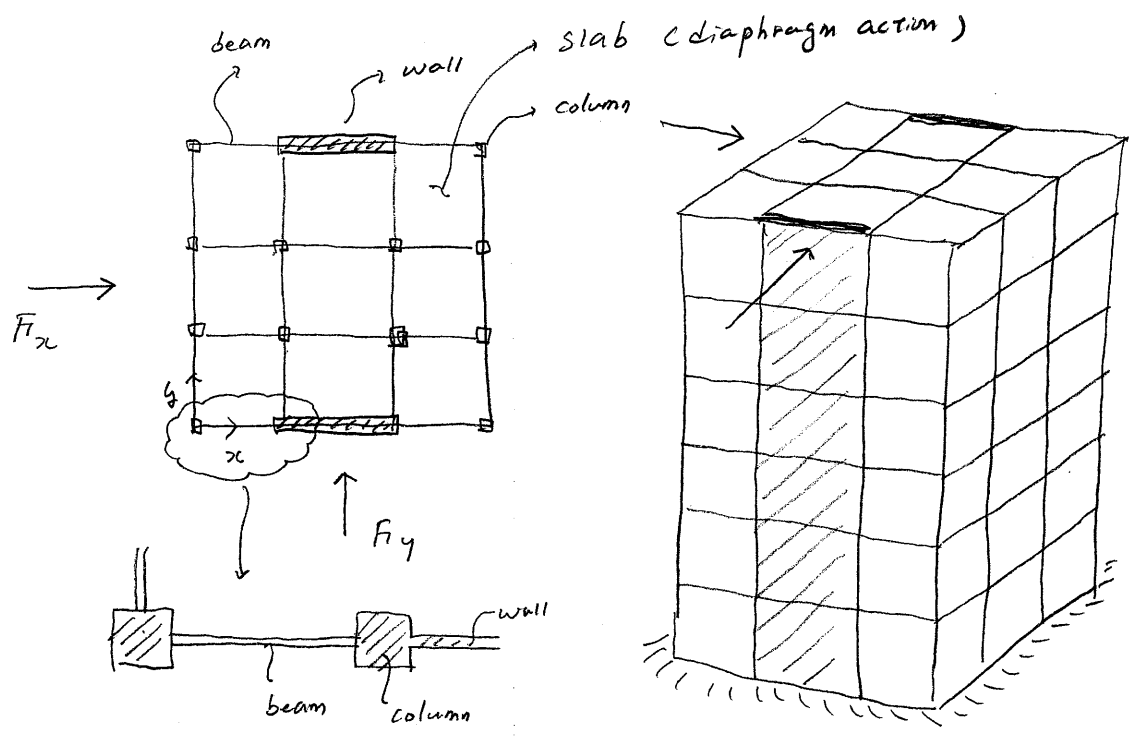 beam
wall
slab (diaphragm action)
column
Fx
y
x
Fy
wall
beam
column